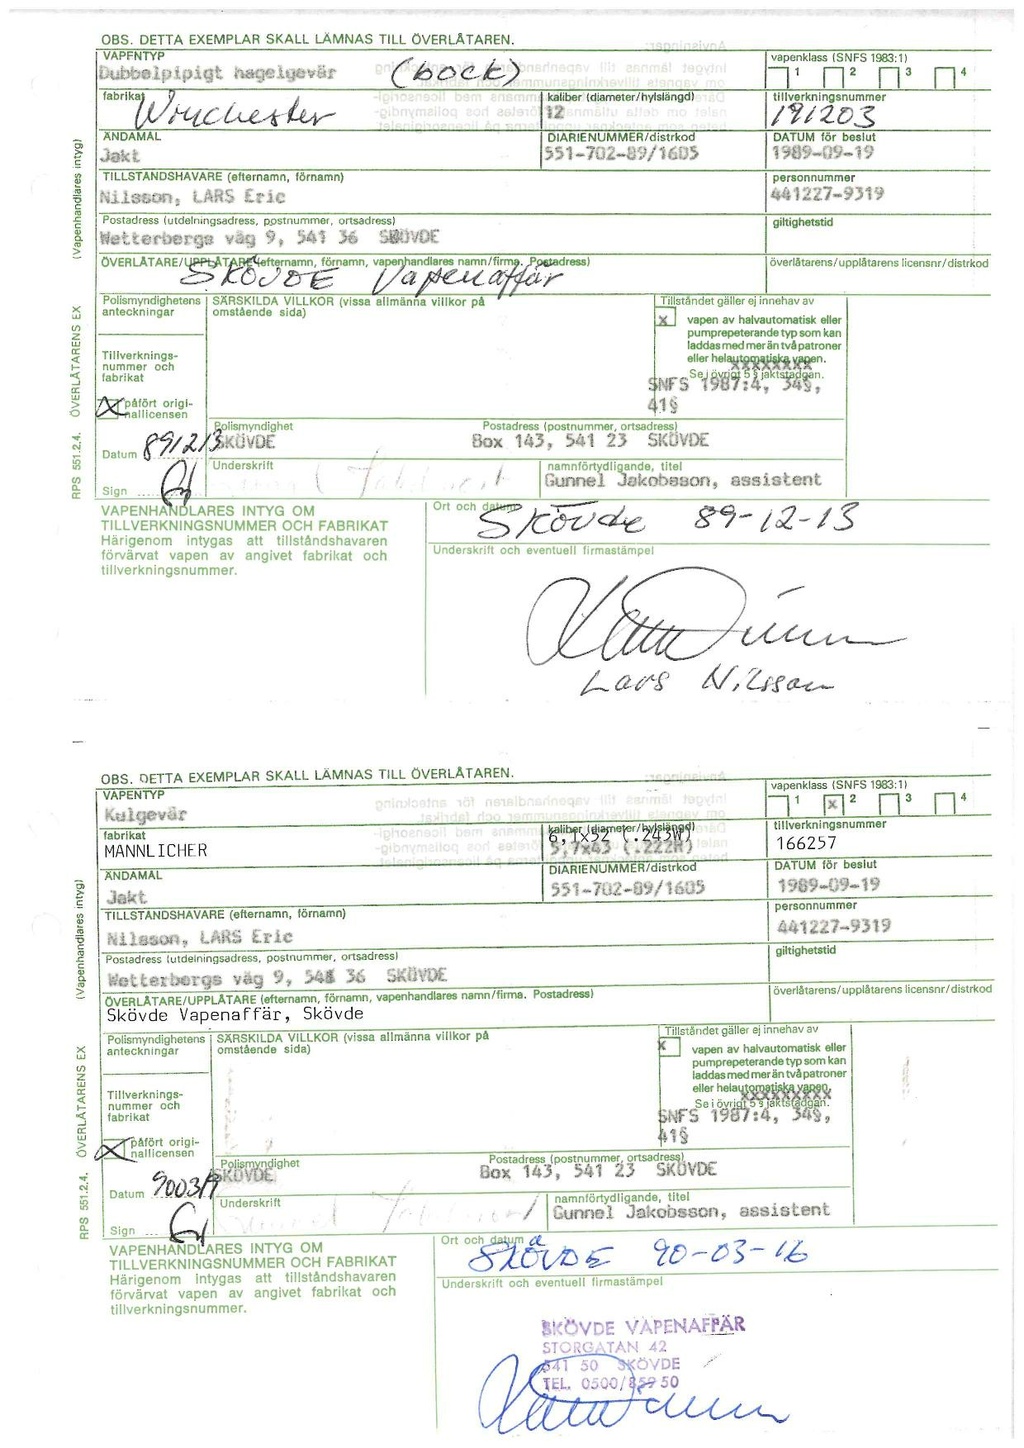 OBS. DETTA EXEMPLAR SKALL LÄMNAS TILL ÖVERLÅTAREN.
VAPENTYP
Dubbelpipigt hagelgevär (bock)
vapenklass (SNFS 1983:1)
1 2 3 4
fabrikat
Winchester
kaliber (diameter/hylslängd)
12
tillverkningsnummer
191203
ÄNDAMÅL
Jakt
DIARIENUMMER/distrkod
551-702-89/1605
DATUM för beslut
1989-09-19
TILLSTÅNDSHAVARE (efternamn, förnamn)
Nilsson, LARS Eric
personnummer
441227-9319
Postadress (utdelningsadress, postnummer, ortsadress)
Wetterbergs väg 9, 541 36 SKÖVDE
giltighetstid
ÖVERLÅTARE/UPPLÅTARE (efternamn, förnamn, vapenhandlares namn/firma. Postadress)
SKÖVDE Vapenaffär
överlåtarens/upplåtarens licensnr/distrkod
Polismyndighetens anteckningar
SÄRSKILDA VILLKOR (vissa allmänna villkor på omstående sida)
Tillståndet gäller ej innehav av
x vapen av halvautomatisk eller
pumprepeterande typ som kan
laddas med mer än två patroner
eller helautomatiska vapen.
xxxxxxxx
Se i övrigt 5 § jaktstadgan.
SNFS 1987:4, 34§,
41§
Tillverknings-
nummer och
fabrikat
X påfört origi-
nallicensen
Datum 891213
Sign
Polismyndighet
SKÖVDE
Postadress (postnummer, ortsadress)
Box 143, 541 23 SKÖVDE
Underskrift
namnförtydligande, titel
Gunnel Jakobsson, assistent
(Vapenhandlares intyg)
RPS 551.2.4. ÖVERLÅTARENS EX
VAPENHANDLARES INTYG OM
TILLVERKNINGSNUMMER OCH FABRIKAT
Härigenom intygas att tillståndshavaren
förvärvat vapen av angivet fabrikat och
tillverkningsnummer.
Ort och datum
Skövde 89-12-13
Underskrift och eventuell firmastämpel
Lars Nilsson
OBS. DETTA EXEMPLAR SKALL LÄMNAS TILL ÖVERLÅTAREN.
VAPENTYP
Kulgevär
vapenklass (SNFS 1983:1)
1 x 2 3 4
fabrikat
MANNLICHER
kaliber (diameter/hylslängd)
6,1x52 (.243W)
5,7x43 (.222R)
tillverkningsnummer
166257
ÄNDAMÅL
Jakt
DIARIENUMMER/distrkod
551-702-89/1605
DATUM för beslut
1989-09-19
TILLSTÅNDSHAVARE (efternamn, förnamn)
Nilsson, LARS Eric
personnummer
441227-9319
Postadress (utdelningsadress, postnummer, ortsadress)
Wetterbergs väg 9, 541 36 SKÖVDE
giltighetstid
ÖVERLÅTARE/UPPLÅTARE (efternamn, förnamn, vapenhandlares namn/firma. Postadress)
Skövde Vapenaffär, Skövde
överlåtarens/upplåtarens licensnr/distrkod
Polismyndighetens anteckningar
SÄRSKILDA VILLKOR (vissa allmänna villkor på omstående sida)
Tillståndet gäller ej innehav av
x vapen av halvautomatisk eller
pumprepeterande typ som kan
laddas med mer än två patroner
eller helautomatiska vapen.
xxxxxxxxx
Se i övrigt 5 § jaktstadgan.
SNFS 1987:4, 34§,
41§
Tillverknings-
nummer och
fabrikat
X påfört origi-
nallicensen
Datum
Sign
Polismyndighet
SKÖVDE
Postadress (postnummer, ortsadress)
Box 143, 541 23 SKÖVDE
Underskrift
namnförtydligande, titel
Gunnel Jakobsson, assistent
(Vapenhandlares intyg)
RPS 551.2.4. ÖVERLÅTARENS EX
VAPENHANDLARES INTYG OM
TILLVERKNINGSNUMMER OCH FABRIKAT
Härigenom intygas att tillståndshavaren
förvärvat vapen av angivet fabrikat och
tillverkningsnummer.
Ort och datum
SKÖVDE 90-03-16
Underskrift och eventuell firmastämpel
SKÖVDE VAPENAFFÄR
STORGATAN 42
541 50 SKÖVDE
TEL. 0500/859 50